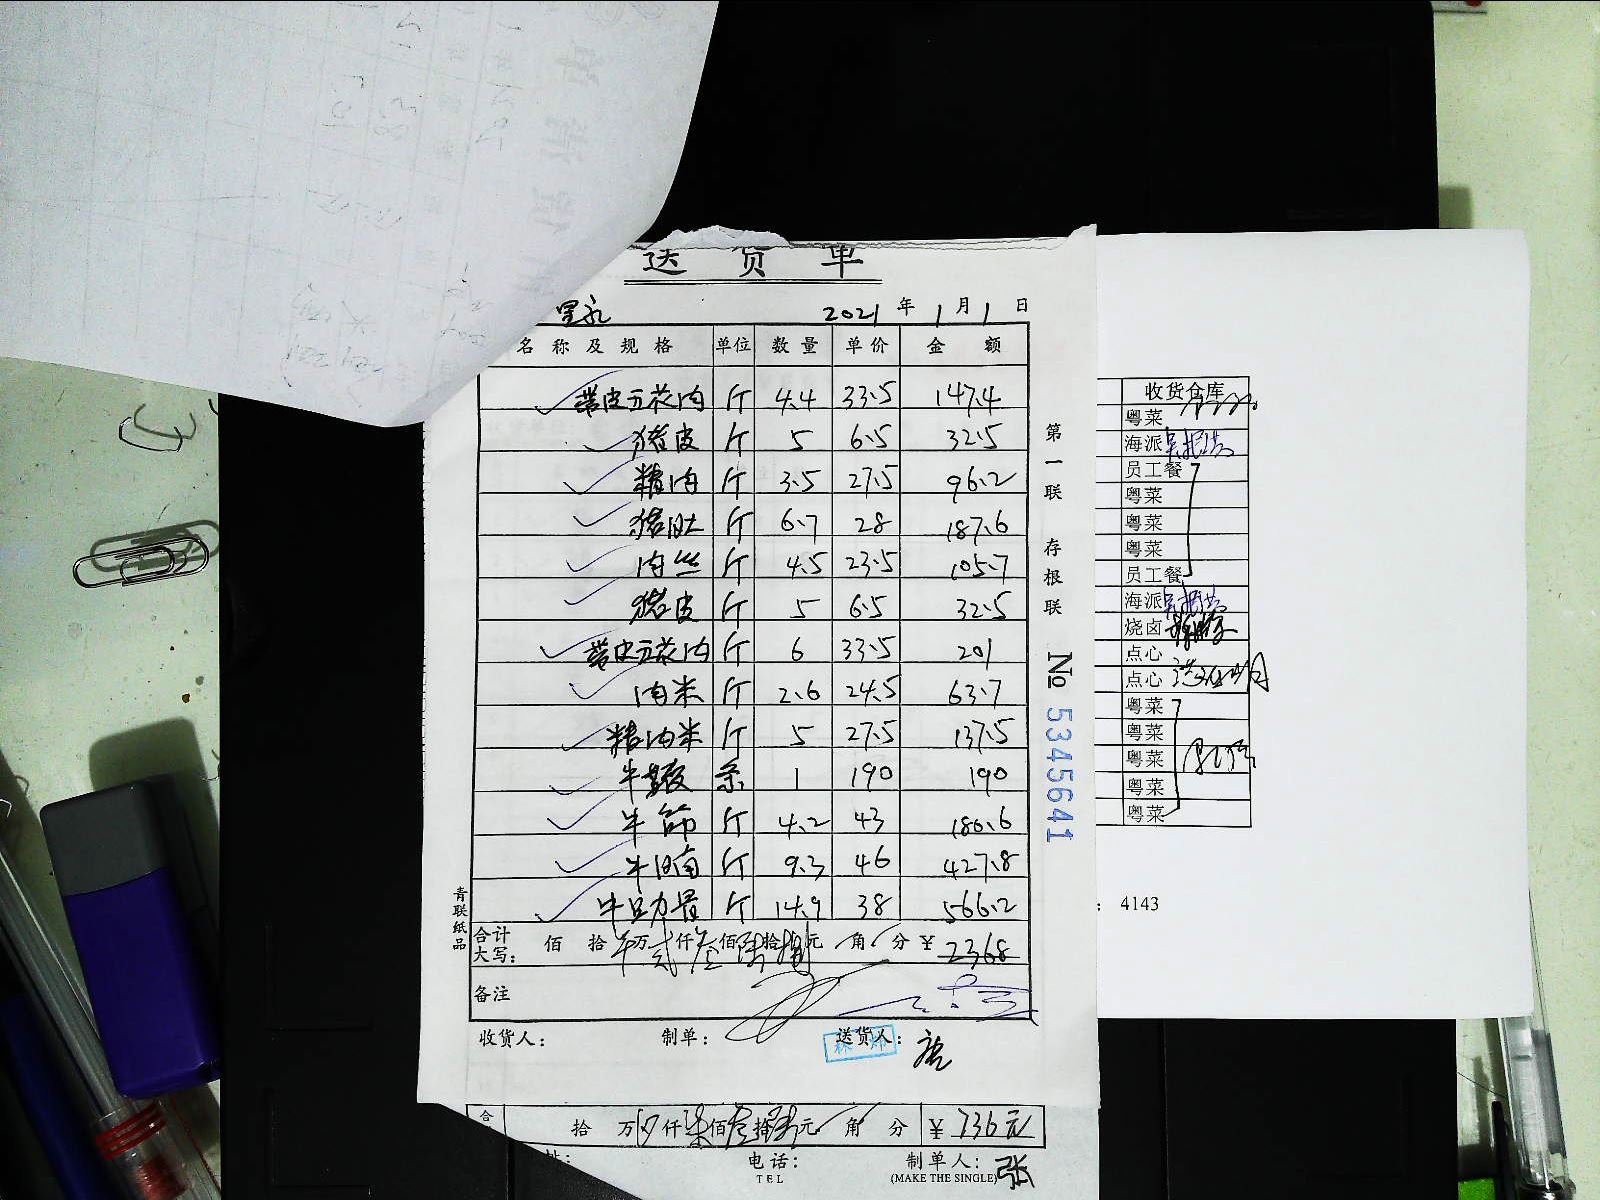 送货单
2021年1月1日
名称及规格 单位 数量 单价 金额
带皮五花肉 斤 4.4 33.5 147.4
猪皮 斤 5 6.5 32.5
精肉 斤 3.5 27.5 96.2
猪肚 斤 6.7 28 187.6
肉丝 斤 4.5 23.5 105.7
猪皮 斤 5 6.5 32.5
带皮五花肉 斤 6 33.5 201
肉米 斤 2.6 24.5 63.7
精肉米 斤 5 27.5 137.5
牛 条 1 190 190
牛筋 斤 4.2 43 180.6
牛腩 斤 9.3 46 427.8
牛 骨 斤 14.9 38 566.2
合计大写: 佰 拾 万贰仟叁佰陆拾捌元 角 分 ¥ 2368
备注
收货人: 制单: 送货人:
第一联 存根联
No 5345641
青联纸品
收货仓库
粤菜
海派
员工餐
粤菜
粤菜
粤菜
员工餐
海派
烧卤
点心
点心
粤菜
粤菜
粤菜
粤菜
粤菜
: 4143
合 拾 万 仟柒佰叁拾陆元 角 分 ¥ 736元
址: 电话: 制单人: 张
TEL (MAKE THE SINGLE)